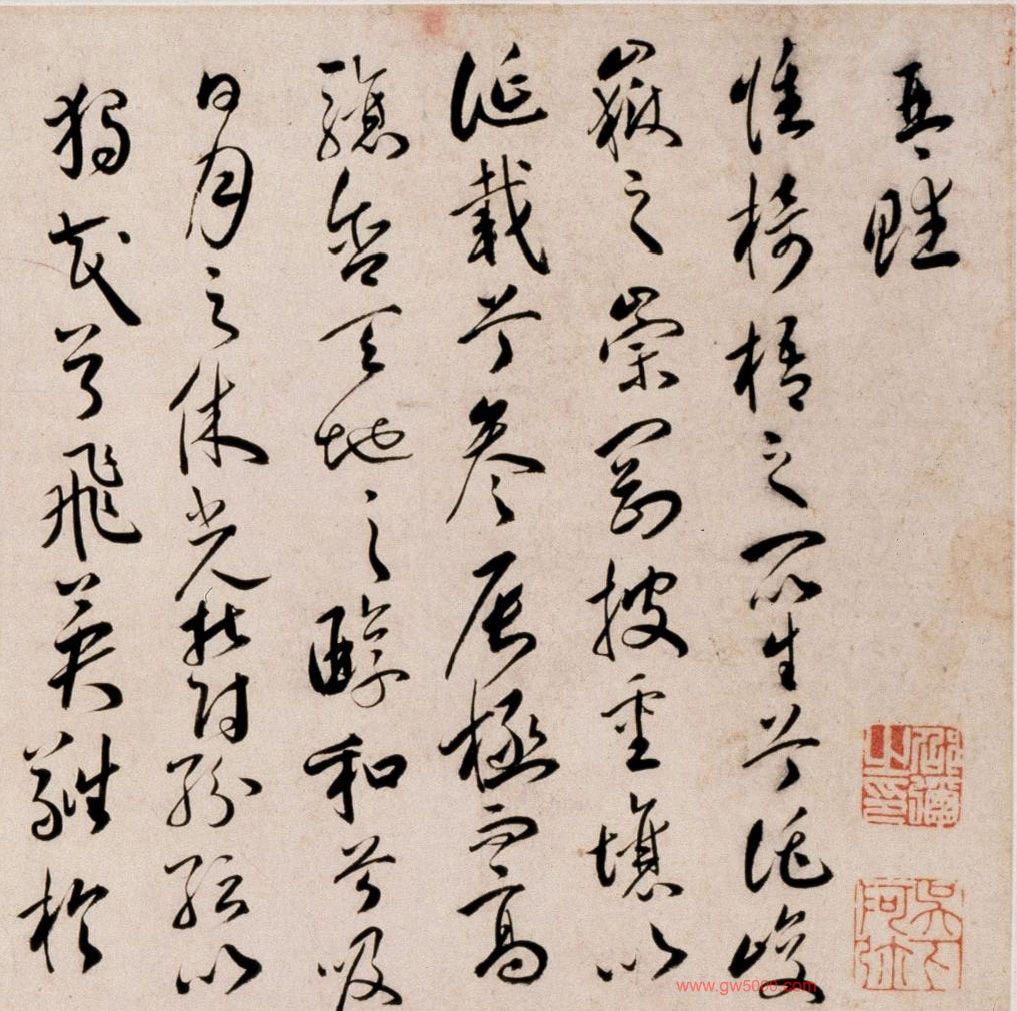 琴賦
惟椅梧之所生兮託峻
嶽之崇岡披重壤以
誕載兮參辰極而高
驤含天地之醇和兮吸
日月之休光鬱紛紜以
獨茂兮飛英蕤於
吳下阿弥
www.gw5000.com